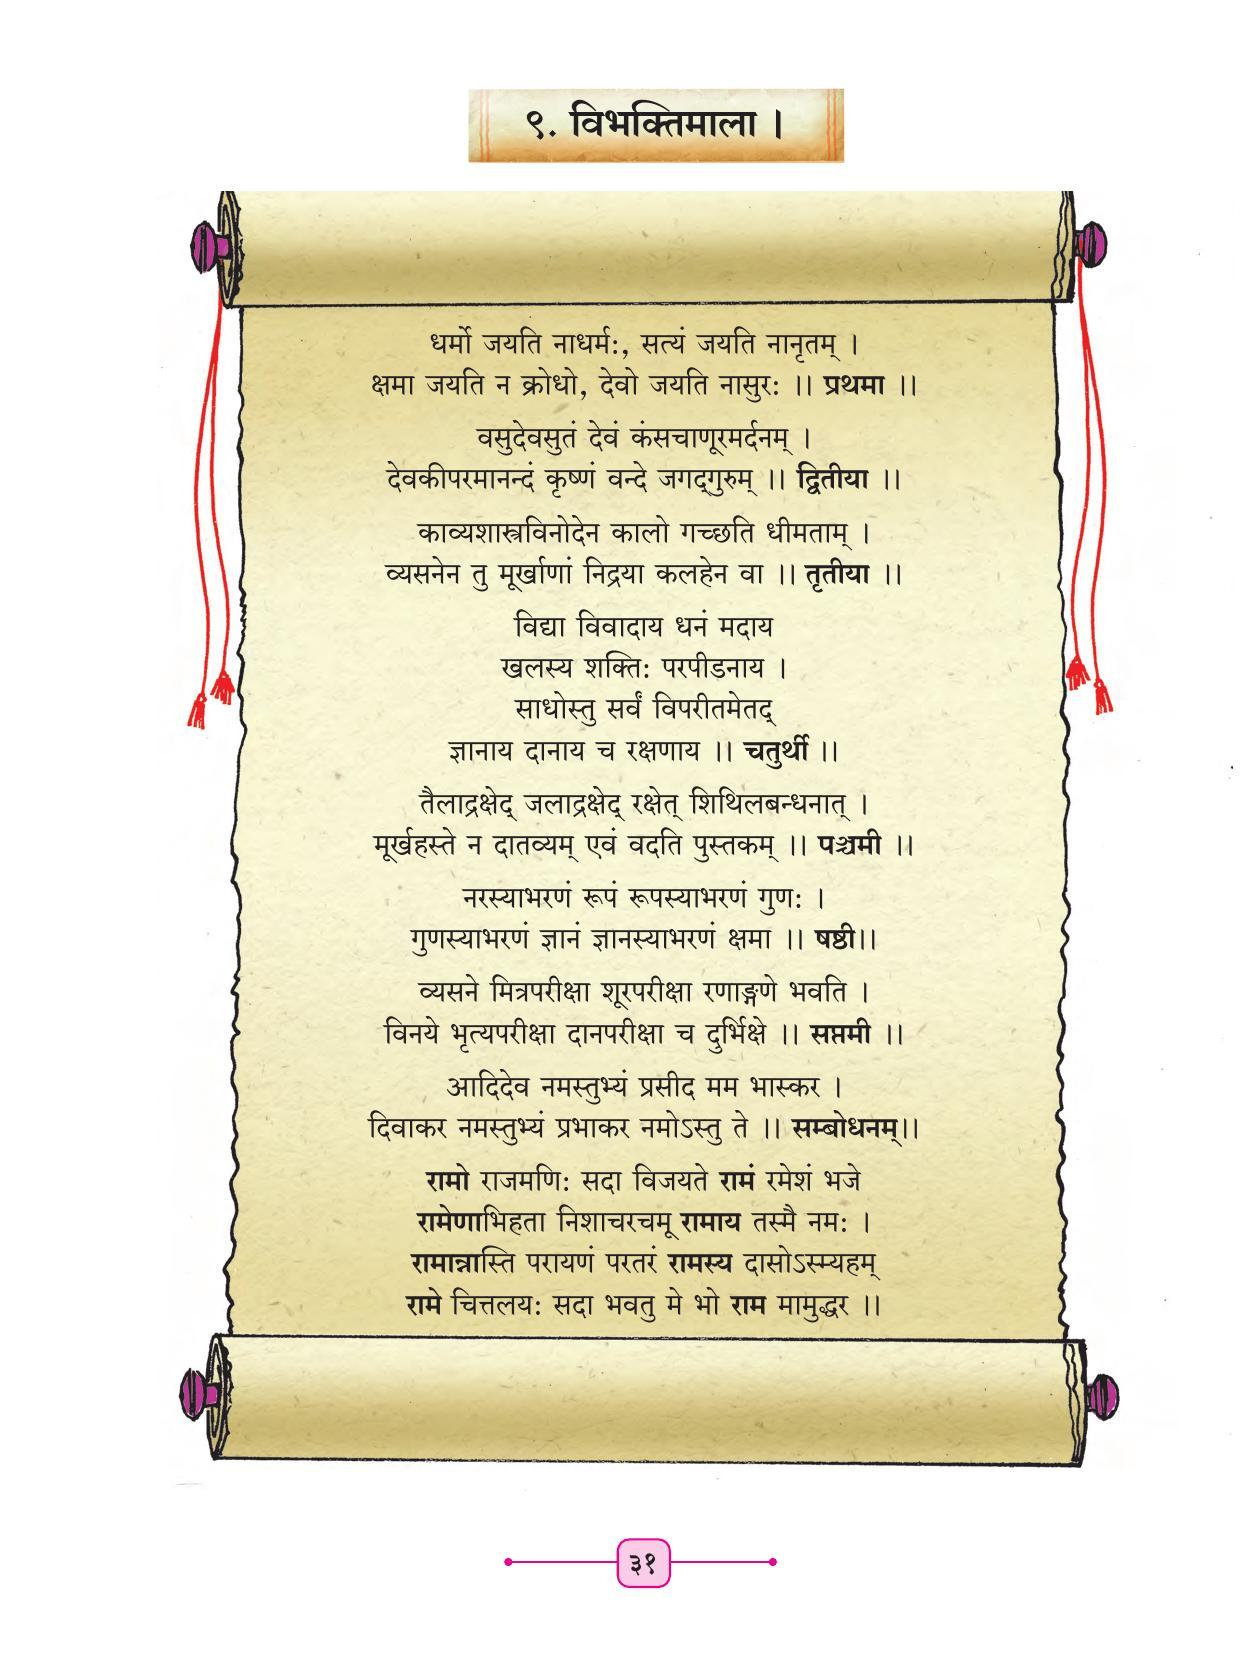 ९. विभक्तिमाला ।
धर्मो जयति नाधर्मः, सत्यं जयति नानृतम् ।
क्षमा जयति न क्रोधो, देवो जयति नासुरः ।। प्रथमा ।।
वसुदेवसुतं देवं कंसचाणूरमर्दनम् ।
देवकीपरमानन्दं कृष्णं वन्दे जगद्गुरुम् ।। द्वितीया ।।
काव्यशास्त्रविनोदेन कालो गच्छति धीमताम् ।
व्यसनेन तु मूर्खाणां निद्रया कलहेन वा ।। तृतीया ।।
विद्या विवादाय धनं मदाय
खलस्य शक्तिः परपीडनाय ।
साधोस्तु सर्वं विपरीतमेतद्
ज्ञानाय दानाय च रक्षणाय ।। चतुर्थी ।।
तैलाद्रक्षेद् जलाद्रक्षेद् रक्षेत् शिथिलबन्धनात् ।
मूर्खहस्ते न दातव्यम् एवं वदति पुस्तकम् ।। पञ्चमी ।।
नरस्याभरणं रूपं रूपस्याभरणं गुणः ।
गुणस्याभरणं ज्ञानं ज्ञानस्याभरणं क्षमा ।। षष्ठी।।
व्यसने मित्रपरीक्षा शूरपरीक्षा रणाङ्गणे भवति ।
विनये भृत्यपरीक्षा दानपरीक्षा च दुर्भिक्षे ।। सप्तमी ।।
आदिदेव नमस्तुभ्यं प्रसीद मम भास्कर ।
दिवाकर नमस्तुभ्यं प्रभाकर नमोऽस्तु ते ।। सम्बोधनम्।।
रामो राजमणिः सदा विजयते रामं रमेशं भजे
रामेणाभिहता निशाचरचमू रामाय तस्मै नमः ।
रामान्नास्ति परायणं परतरं रामस्य दासोऽस्म्यहम्
रामे चित्तलयः सदा भवतु मे भो राम मामुद्धर ।।
३१